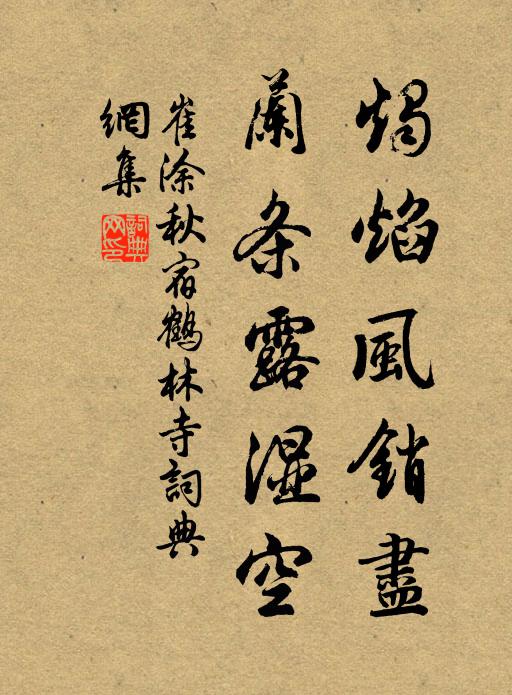 燭焰風銷盡
蘭条露濕空
崔涂秋宿鶴林寺詞典
網集
詞典網印